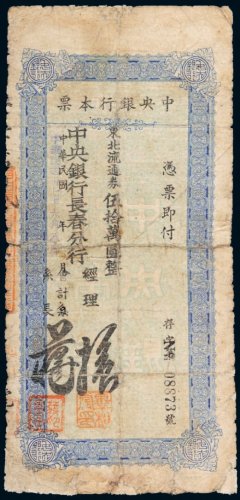 中央銀行本票
憑票即付
存字第08873號
東北流通券伍拾萬圓整
中央銀行長春分行
經理
中華民國 年 月
會計系
系長